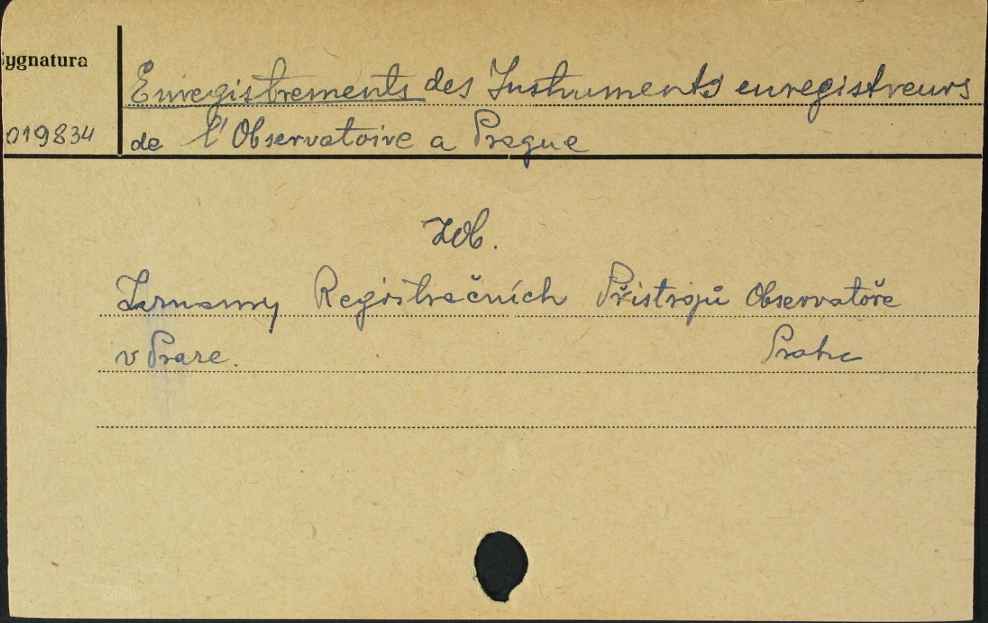 Sygnatura
Enregistrements des Instruments enregistreurs
019834
de l'Observatoire a Prague
Zob.
Zaznamy Registračních Přistrojů Observatoře
v Praze. Praha